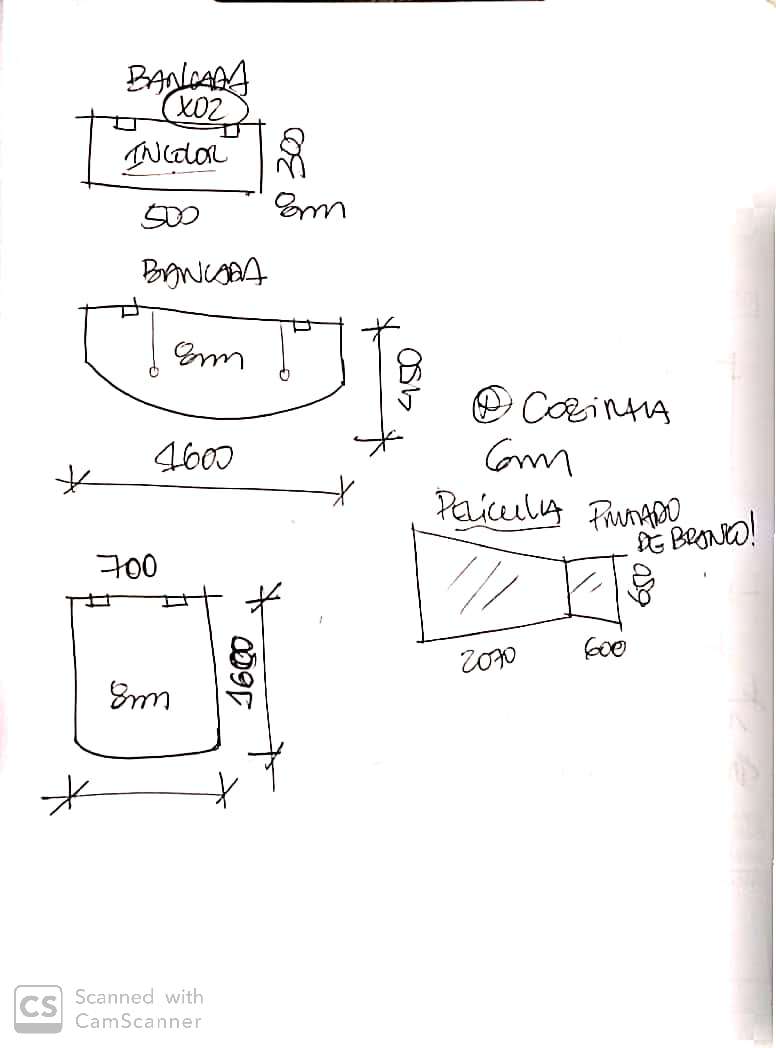 BANCADA
X02
INCOLOR
500
300
8mm
BANCADA
8mm
450
1600
700
8mm
1600
COZINHA
6mm
PELICULA
PINTADO
DE BRANCO!
2070
600
650
CS
Scanned with
CamScanner